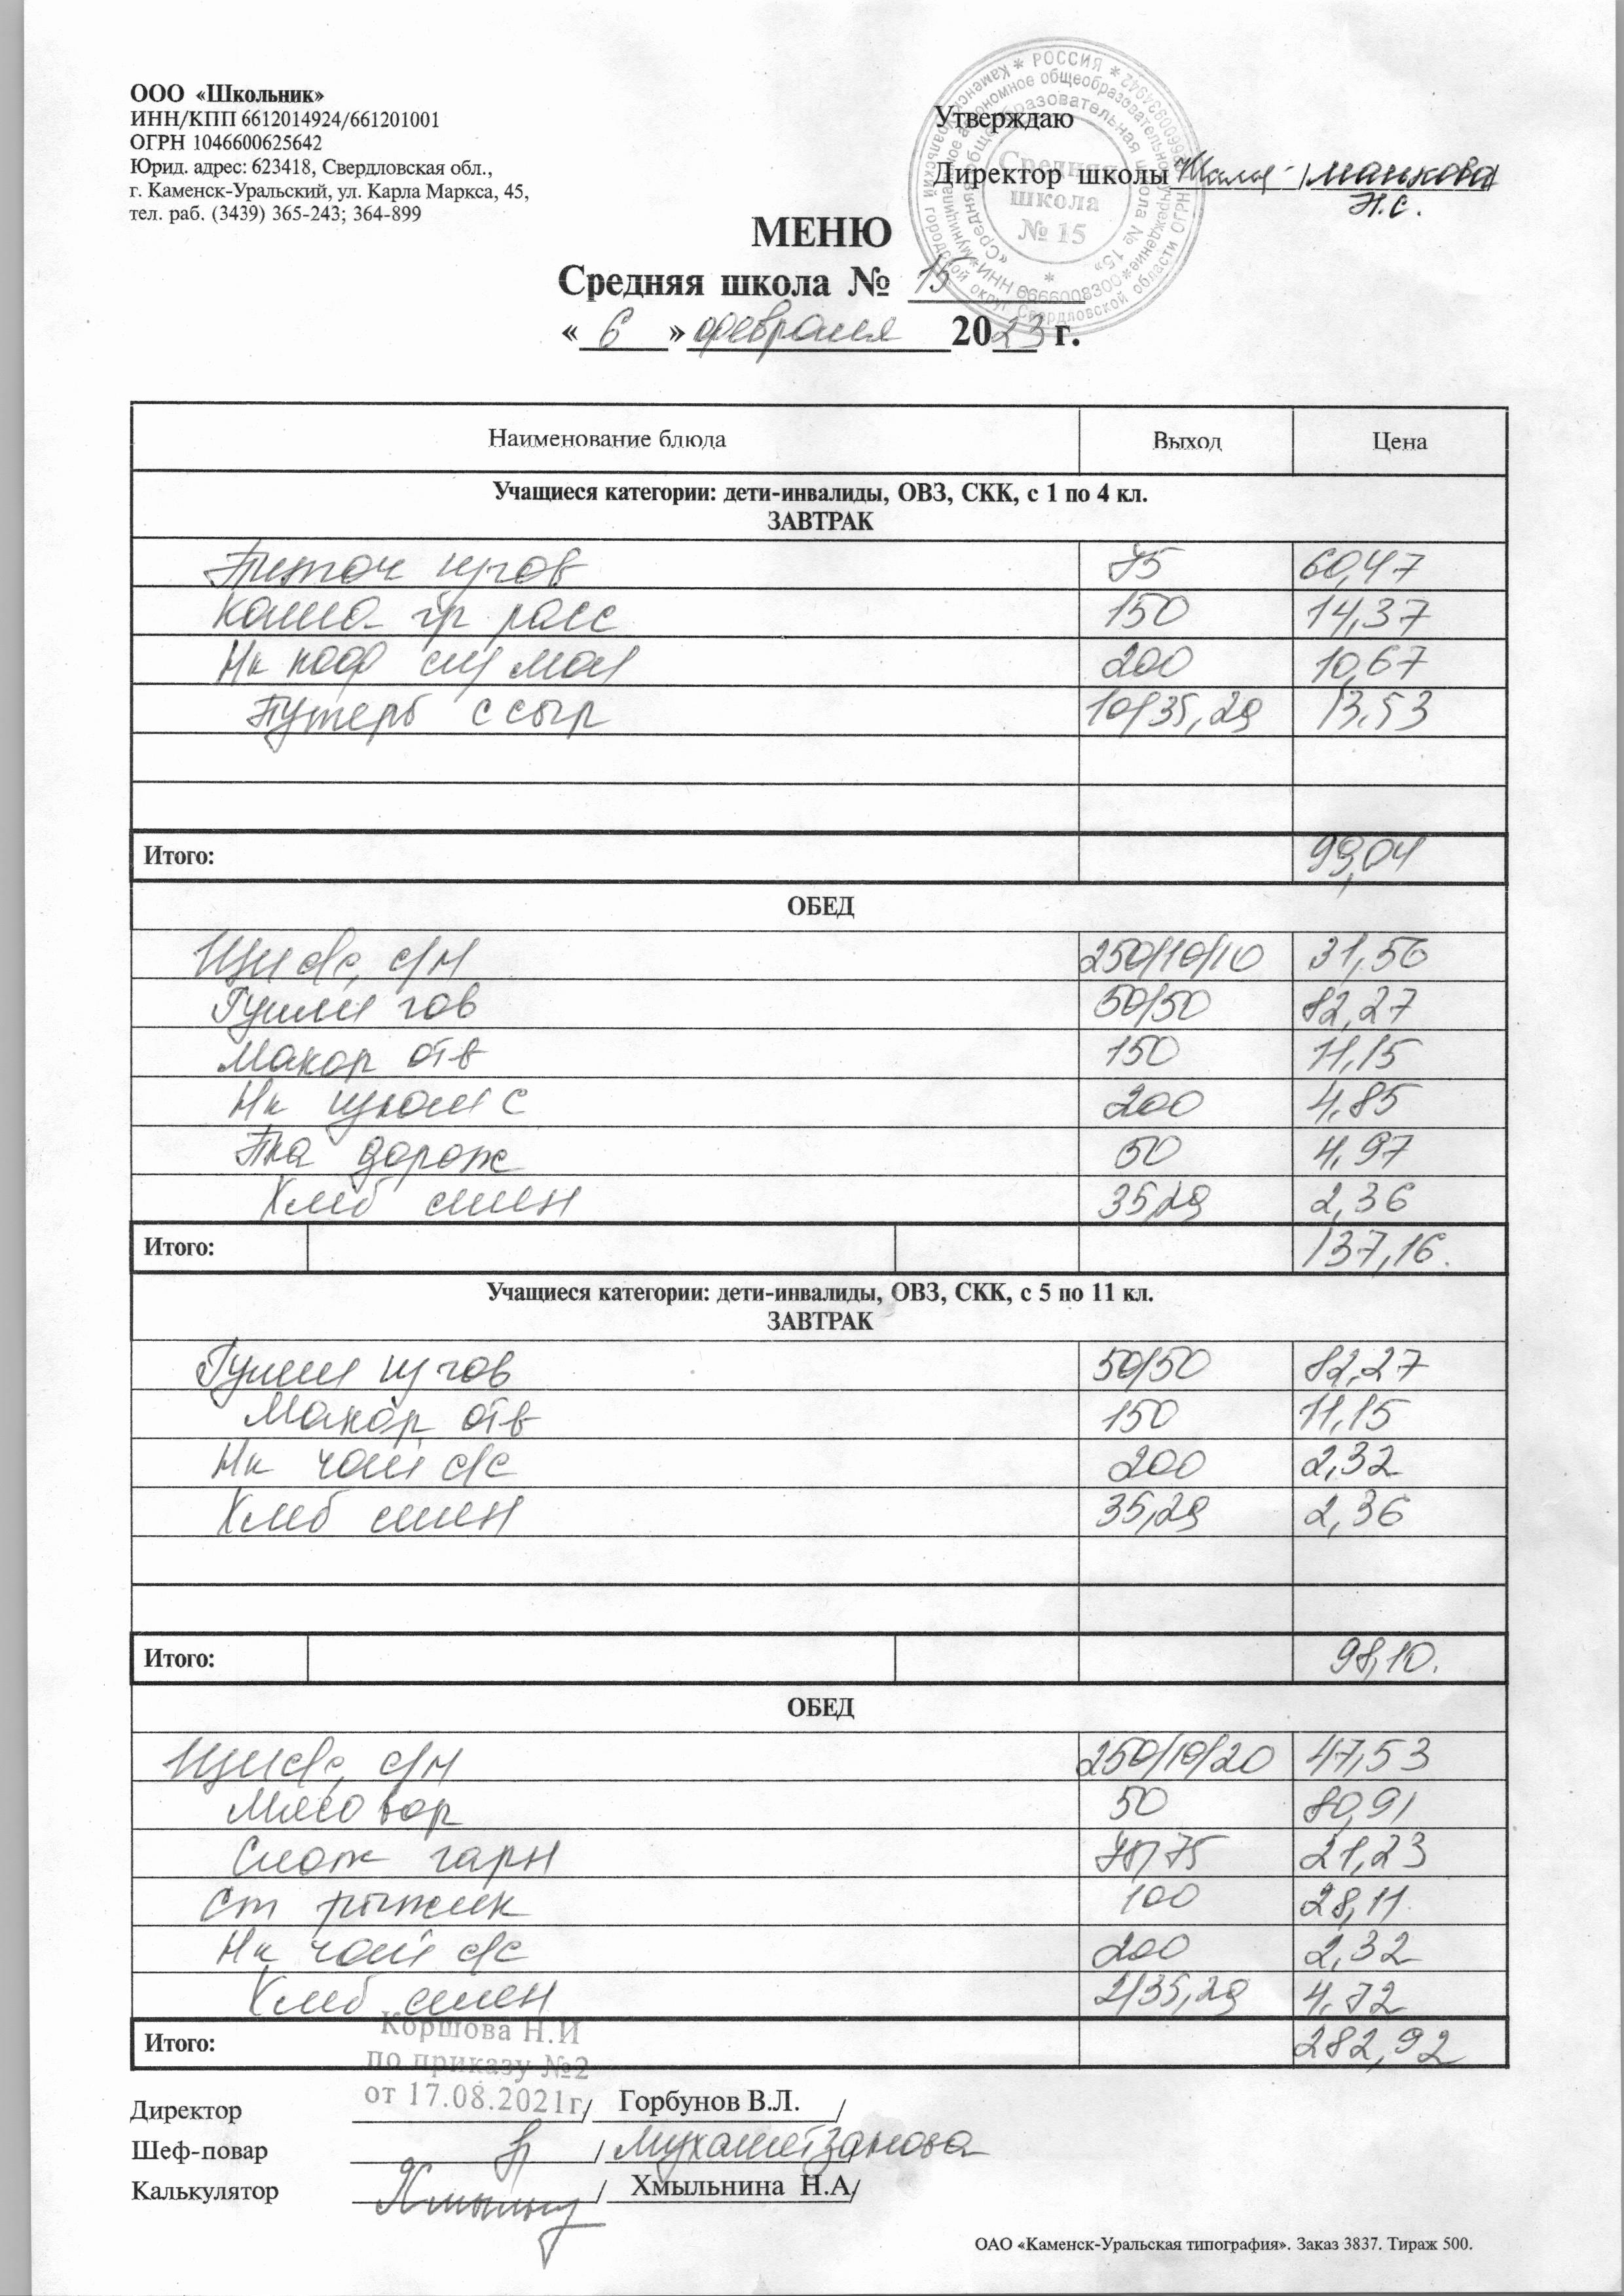 ООО «Школьник»
ИНН/КПП 6612014924/661201001
ОГРН 1046600625642
Юрид. адрес: 623418, Свердловская обл.,
г. Каменск-Уральский, ул. Карла Маркса, 45,
тел. раб. (3439) 365-243; 364-899
Утверждаю
Директор школы /Манкова/
Н.С.
Средняя
школа
№ 15
МЕНЮ
Средняя школа № 15
« 6 » февраля 2023 г.
Наименование блюда Выход Цена
Учащиеся категории: дети-инвалиды, ОВЗ, СКК, с 1 по 4 кл.
ЗАВТРАК
Биточ из гов 75 60,47
Каша гр расс 150 14,37
Нк коф сгу мол 200 10,67
Бутерб с сыр 10/35,29 13,53
Итого: 99,04
ОБЕД
Щи с/с, с/м 250/10/10 31,56
Гуляш гов 50/50 82,27
Макар отв 150 11,15
Нк 200 4,85
дорож 50 4,97
Хлеб смен 35,29 2,36
Итого: 137,16.
Учащиеся категории: дети-инвалиды, ОВЗ, СКК, с 5 по 11 кл.
ЗАВТРАК
Гуляш из гов 50/50 82,27
Макар отв 150 11,15
Нк чай с/с 200 2,32
Хлеб смен 35,29 2,36
Итого: 98,10.
ОБЕД
Щи с/с, с/м 250/10/20 47,53
Мясо вар 50 80,91
Слож гарн 75/75 21,23
Ст рыжик 100 28,11
Нк чай с/с 200 2,32
Хлеб смен 2/35,29 4,72
Итого: 282,92
Коршова Н.И
по приказу №2
от 17.08.2021г.
Директор / Горбунов В.Л. /
Шеф-повар / Мухаметзанова
Калькулятор / Хмыльнина Н.А/
ОАО «Каменск-Уральская типография». Заказ 3837. Тираж 500.